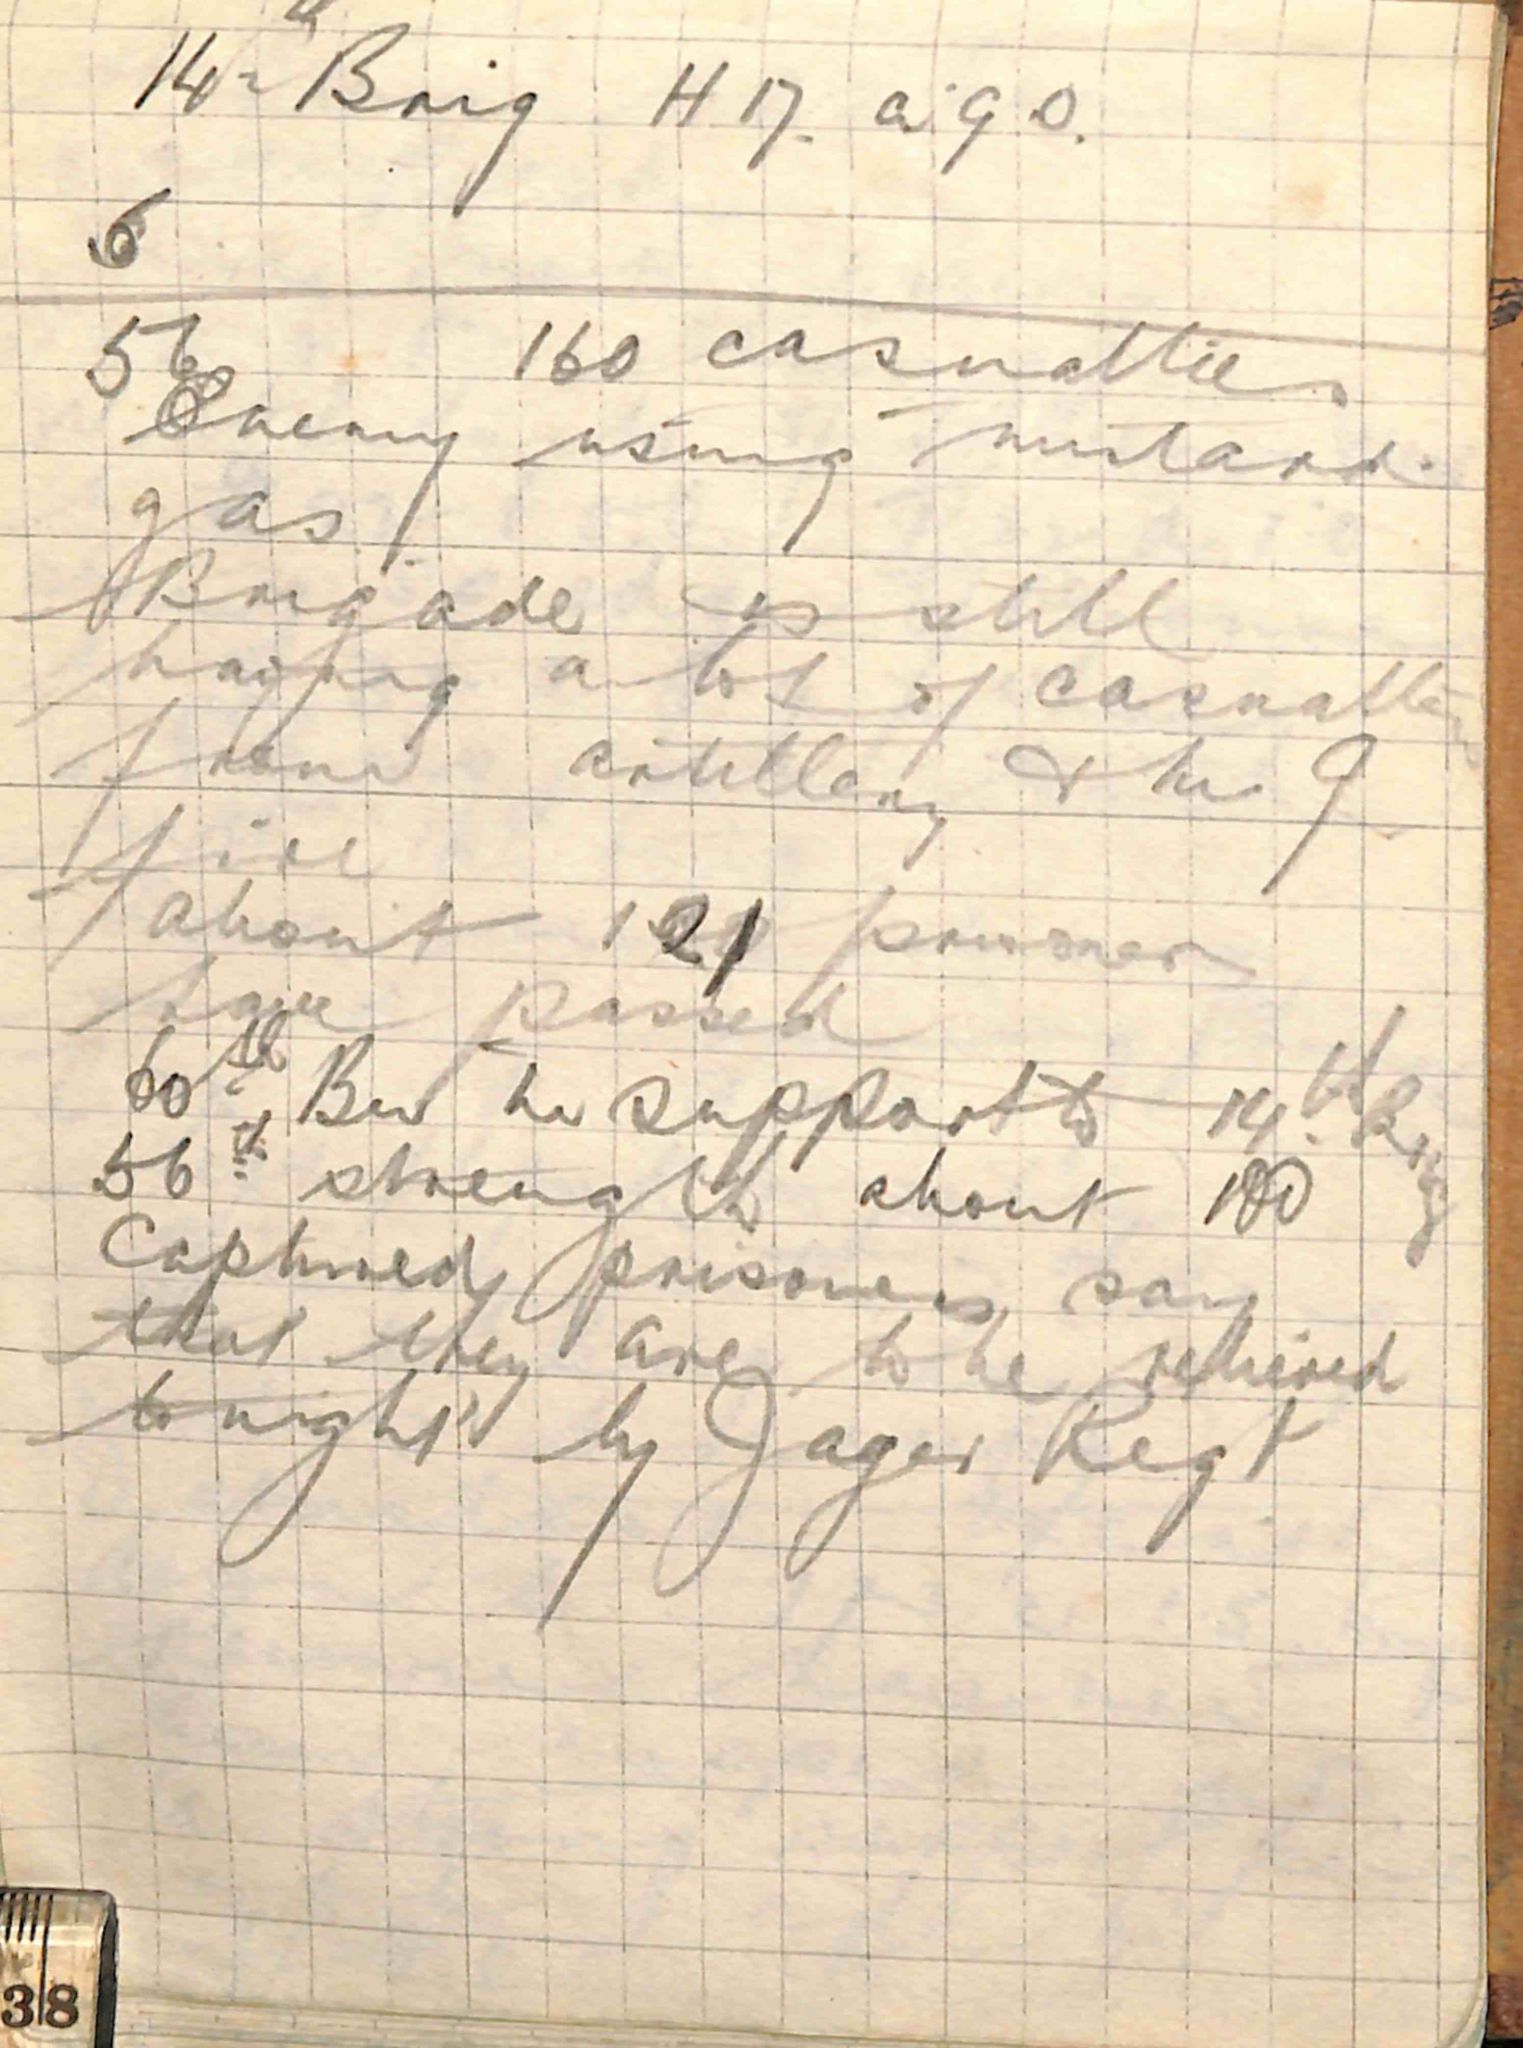 14th Brig H 17. a. 9. 0.
6
56 160 casualties
Enemy using mustard
gas
Brigade is still
having a lot of casualties
from artillery & M G
fire
about 121 prisoners
have passed
60th Bn in support to 14th Brig
56th strength about 180
Captured prisoners say
that they are to be relieved
to night by Jager Regt
38